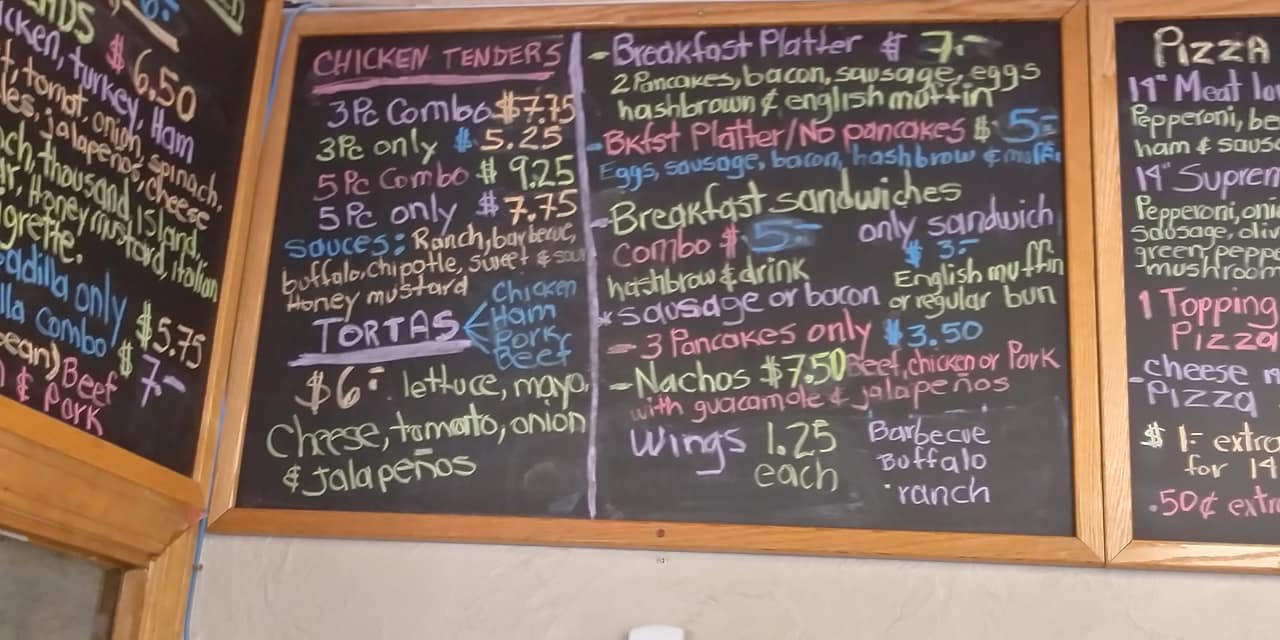 $ 6.50
cken, turkey, Ham
tomat, onion, spinach,
les, jalapeños, cheese
ch, thousand Island,
r, Honey mustard, italian
grette.
adilla only $5.75
lla Combo $ 7.-
ean) Beef
& Pork
CHICKEN TENDERS
3Pc Combo $7.75
3Pc only $ 5.25
5Pc Combo $ 9.25
5Pc only $7.75
sauces: Ranch, barbecue,
buffalo, Chipotle, sweet & sour
Honey mustard
TORTAS < Chicken
Ham
Pork
Beef
$6.- lettuce, mayo,
Cheese, tomato, onion
& Jalapeños
- Breakfast Platter $ 7.-
2 Pancakes, bacon, sausage, eggs
hashbrown & english muffin
- Bkfst Platter/No pancakes $ 5.-
Eggs, sausage, bacon, hashbrow & muffi
- Breakfast sandwiches
Combo $ 5.- only sandwich
$ 3.-
hashbrow & drink English muffin
* sausage or bacon or regular bun
- 3 Pancakes only $3.50
- Nachos $7.50 Beef, chicken or Pork
with guacamole & jalapeños
Wings 1.25 each
Barbecue
Buffalo
ranch
PIZZA
14" Meat lov
Pepperoni, be
ham & saus
14" Suprem
Pepperoni, oni
Sausage, oliv
green peppe
mushroom
1 Topping
Pizza
- cheese
Pizza
$ 1.- extra
for 14
.50¢ extr